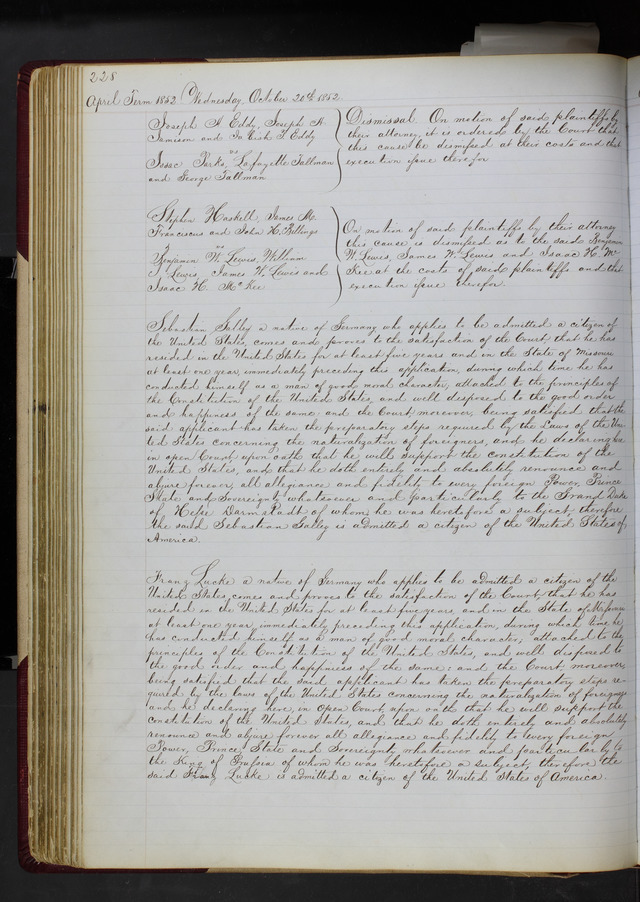 228
April Term 1852 Wednesday, October 20th 1852.
Joseph A Eddy, Joseph H.
Jamison and J. Eddy
vs
Isaac Parks, Lafayette Tallman
and George Tallman
Dismissal. On motion of said plaintiffs by
their attorney, it is ordered by the Court that
this cause be dismissed at their costs and that
execution issue therefor
Stephen Haskell, James Mc.
Franciscus and John H. Billings
vs
Benjamin W. Lewis, William
J. Lewis, James W. Lewis and
Isaac H. McKee
On motion of said plaintiffs by their attorney
this cause is dismissed as to the said Benjamin
W. Lewis, James W Lewis and Isaac H. Mc
Kee at the costs of said plaintiffs and that
execution issue therefor.
Sebastian Salley a native of Germany who applies to be admitted a citizen of
the United States, comes and proves to the satisfaction of the Court, that he has
resided in the United States for at least five years and in the State of Missouri
at least one year, immediately preceding this application, during which time he has
conducted himself as a man of good moral character, attached to the principles of
the Constitution of the United States, and well disposed to the good order
and happiness of the same: and the Court, moreover, being satisfied that the
said applicant has taken the preparatory steps required by the Laws of the Uni-
ted States concerning the naturalization of foreigners, and he declaring here
in open Court upon oath that he will support the constitution of the
United States, and that he doth entirely and absolutely renounce and
abjure forever, all allegiance and fidelity to every foreign Power, Prince
State and Sovereignty whatsoever and particularly to the Grand Duke
of Hesse Darmstadt of whom he was heretofore a subject, therefore
the said Sebastian Salley is admitted a citizen of the United States of
America.
Franz Lucke a native of Germany who applies to be admitted a citizen of the
United States, comes and proves to the satisfaction of the Court, that he has
resided in the United States for at least five years, and in the State of Missouri
at least one year, immediately preceding this application, during which time he
has conducted himself as a man of good moral character, attached to the
principles of the Constitution of the United States, and well disposed to
the good order and happiness of the same: and the Court, moreover,
being satisfied that the said applicant has taken the preparatory steps re-
quired by the laws of the United States concerning the naturalization of foreigners
and he declaring here, in open Court, upon oath that he will support the
constitution of the United States, and that he doth entirely and absolutely
renounce and abjure forever all allegiance and fidelity to every foreign
Power, Prince, State and Sovereignty whatsoever and particularly to
the King of Prussia of whom he was heretofore a subject, therefore the
said Franz Lucke is admitted a citizen of the United States of America.